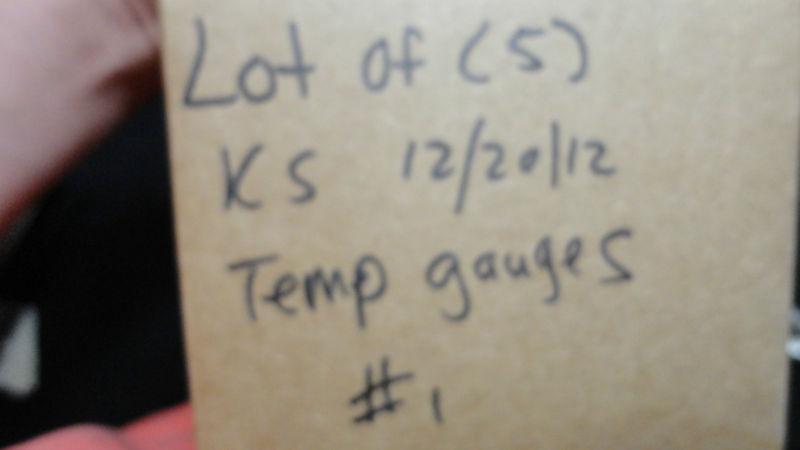 Lot of (5)
KS 12/20/12
Temp gauges
#1